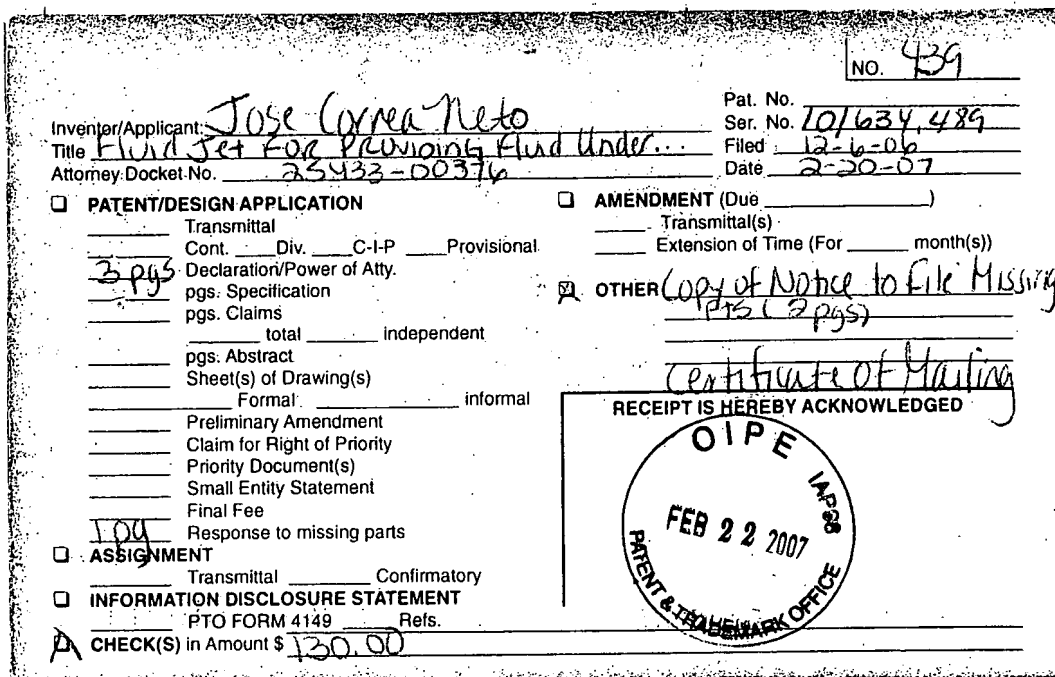 NO. 439
Inventor/Applicant: Jose Correa Neto
Title Fluid Jet For Providing Fluid Under...
Attorney Docket No. 25433-00376
Pat. No.
Ser. No. 10/634,489
Filed 12-6-06
Date 2-20-07
PATENT/DESIGN APPLICATION
Transmittal
Cont. Div. C-I-P Provisional
3 pgs Declaration/Power of Atty.
pgs. Specification
pgs. Claims
total independent
pgs. Abstract
Sheet(s) of Drawing(s)
Formal informal
Preliminary Amendment
Claim for Right of Priority
Priority Document(s)
Small Entity Statement
Final Fee
1 pg Response to missing parts
ASSIGNMENT
Transmittal Confirmatory
INFORMATION DISCLOSURE STATEMENT
PTO FORM 4149 Refs.
CHECK(S) in Amount $ 130.00
AMENDMENT (Due )
Transmittal(s)
Extension of Time (For month(s))
OTHER Copy of Notice to File Missing
Pts (2 pgs)
Certificate of Mailing
RECEIPT IS HEREBY ACKNOWLEDGED
OIPE
FEB 22 2007
PATENT & TRADEMARK OFFICE